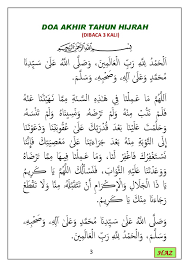 DOA AKHIR TAHUN HIJRAH
(DIBACA 3 KALI)
بِسْمِ اللهِ الرَّحْمٰنِ الرَّحِيْمِ
اَلْحَمْدُ لِلّٰهِ رَبِّ الْعَالَمِيْنَ، وَصَلَّى اللهُ عَلَى سَيِّدِنَا
مُحَمَّدٍ وَعَلَى آلِهِ، وَصَحْبِهِ، وَسَلَّمَ.
اَللّٰهُمَّ مَا عَمِلْنَا فِي هٰذِهِ السَّنَةِ مِمَّا نَهَيْتَنَا عَنْهُ
فَلَمْ نَتُبْ مِنْهُ وَلَمْ تَرْضَهُ، وَنَسِيْنَاهُ وَلَمْ تَنْسَهُ،
وَحَلُمْتَ عَلَيْنَا بَعْدَ قُدْرَتِكَ عَلَى عُقُوْبَتِنَا، وَدَعَوْتَنَا
إِلَى التَّوْبَةِ مِنْهُ بَعْدَ جَرَاءَتِنَا عَلَى مَعْصِيَتِكَ فَإِنَّنَا
نَسْتَغْفِرُكَ فَاغْفِرْ لَنَا، وَمَا عَمِلْنَا فِيْهَا مِمَّا تَرْضَاهُ
وَوَعَدْتَنَا عَلَيْهِ الثَّوَابَ، فَنَسْأَلُكَ اللّٰهُمَّ يَا كَرِيْمُ
يَا ذَا الْجَلَالِ وَالْإِكْرَامِ أَنْ تَتَقَبَّلَهُ مِنَّا وَلَا تَقْطَعْ
رَجَاءَنَا مِنْكَ يَا كَرِيْمُ.
وَصَلَّى اللهُ عَلَى سَيِّدِنَا مُحَمَّدٍ وَعَلَى آلِهِ، وَصَحْبِهِ،
وَسَلَّمَ، وَالْحَمْدُ لِلّٰهِ رَبِّ الْعَالَمِيْنَ.
3
HAZ